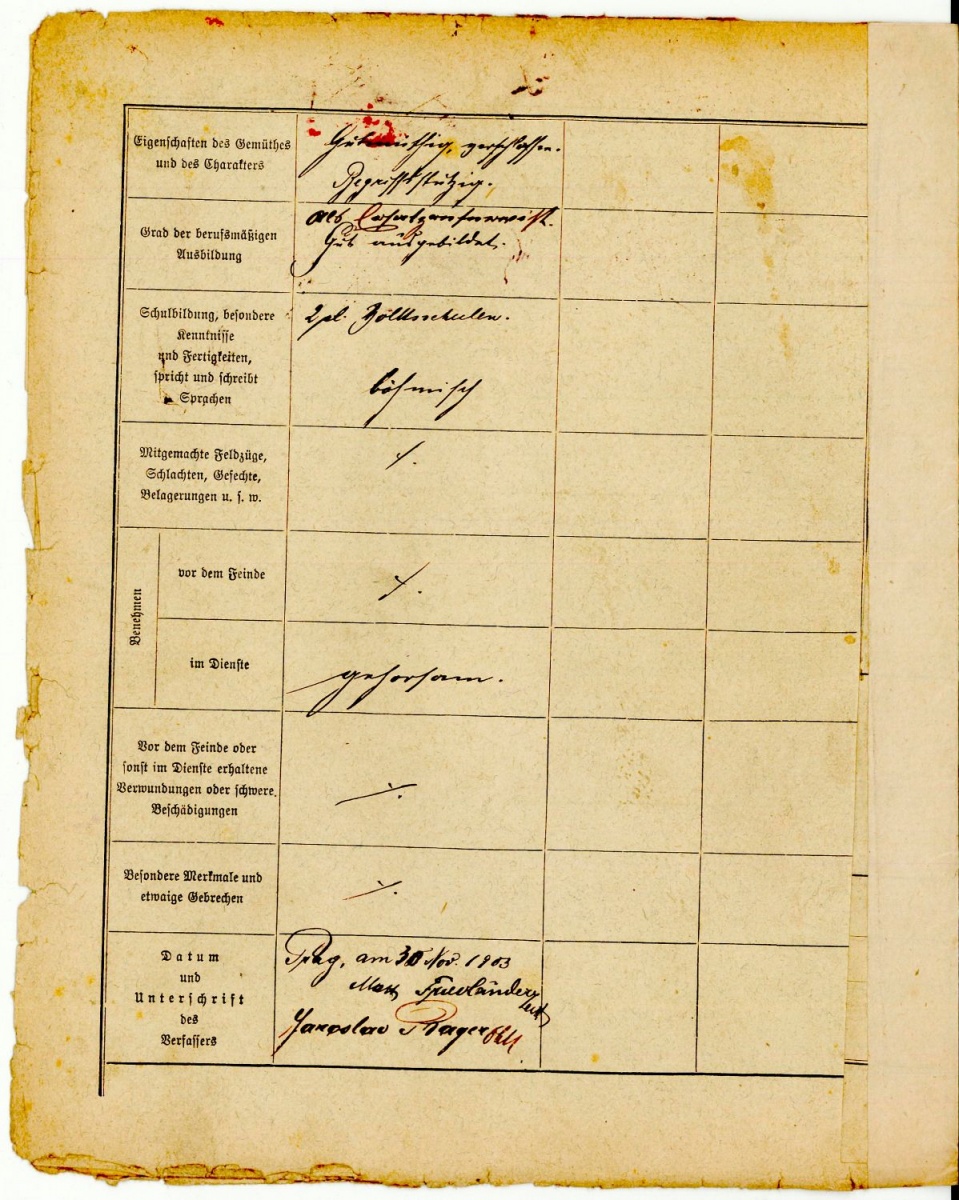 Eigenschaften des Gemüthes
und des Charakters
Gutmüthig, verschlossen.
Begriffsstutzig.
Grad der berufsmäßigen
Ausbildung
als
Gut ausgebildet.
Schulbildung, besondere
Kenntnisse
und Fertigkeiten,
spricht und schreibt
Sprachen
2 Volksschulen.
böhmisch
Mitgemachte Feldzüge,
Schlachten, Gefechte,
Belagerungen u. s. w.
Benehmen
vor dem Feinde
im Dienste
gehorsam.
Vor dem Feinde oder
sonst im Dienste erhaltene
Verwundungen oder schwere
Beschädigungen
Besondere Merkmale und
etwaige Gebrechen
Datum
und
Unterschrift
des
Verfassers
Prag, am 30 Nov. 1903
Friedländer
Jaroslav Rager